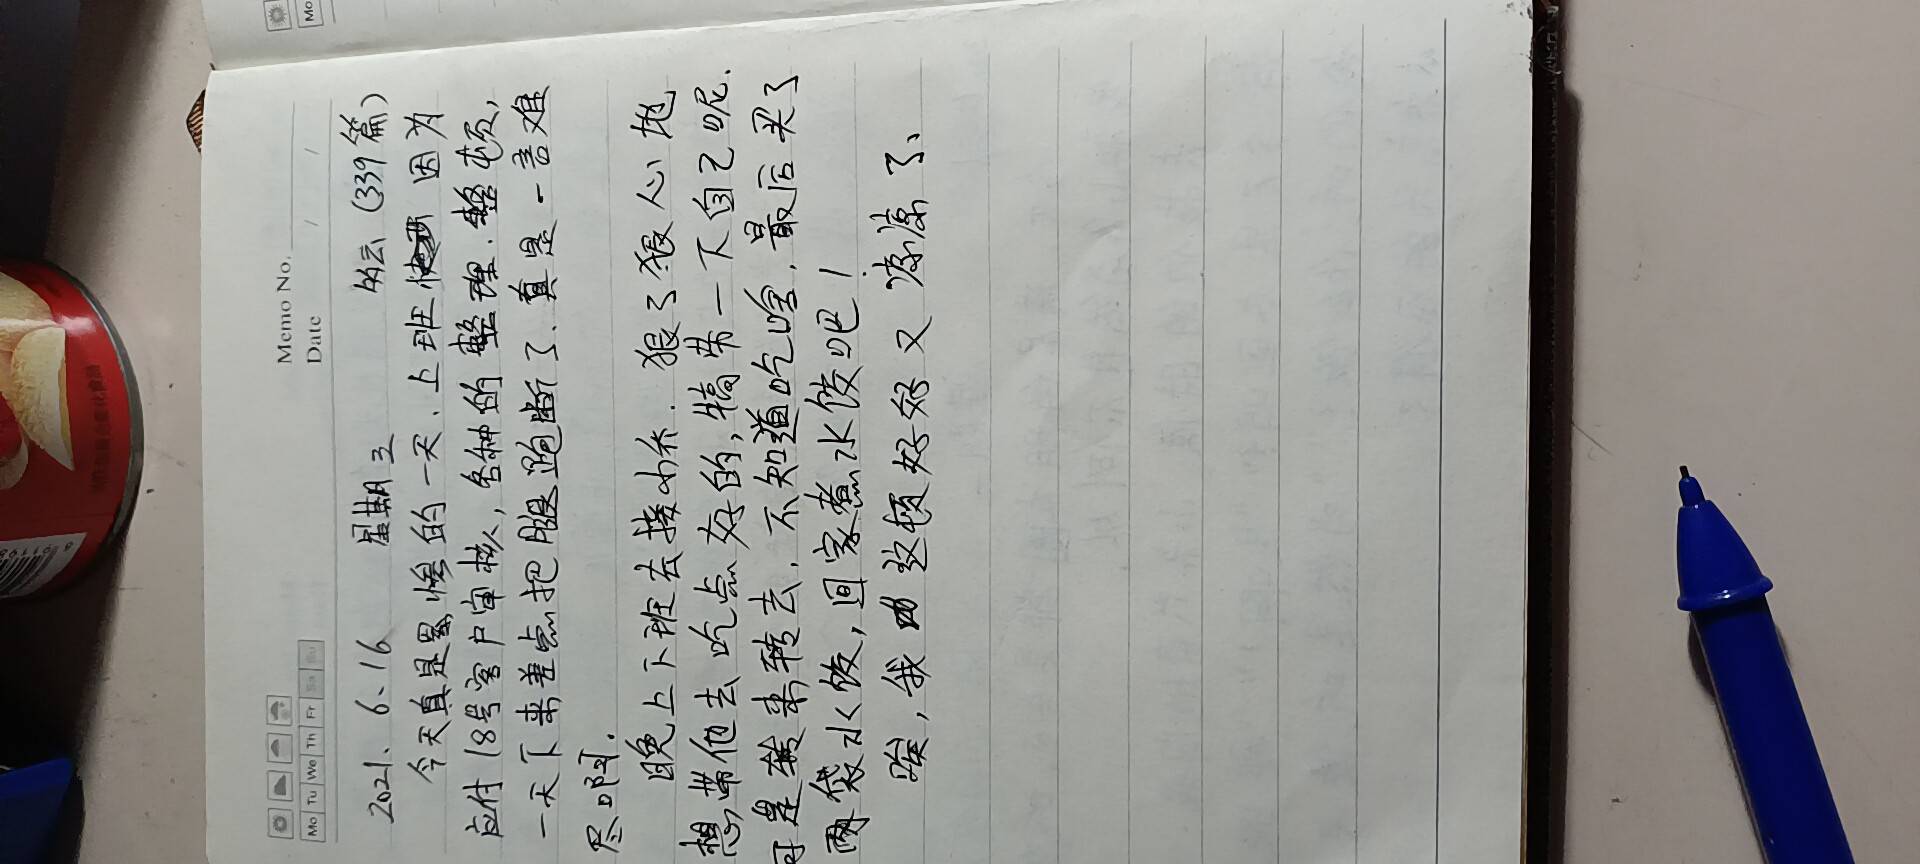 Memo No.
Date / /
Mo Tu We Th Fr Sa Su
2021、6、16 星期三 多云（339篇）
今天真是累惨的一天、上班 因为
应付18号客户审核，各种的整理、整顿，
一天下来差点把腿跑断了、真是一言难
尽啊.
晚上下班去接小乔. 狠了狠心地
想带他去吃点好的，犒劳一下自己呢.
可是转来转去、不知道吃啥、最后买了
两袋水饺，回家煮水饺吧！
唉，我 这顿好好又凉凉了、
Mo